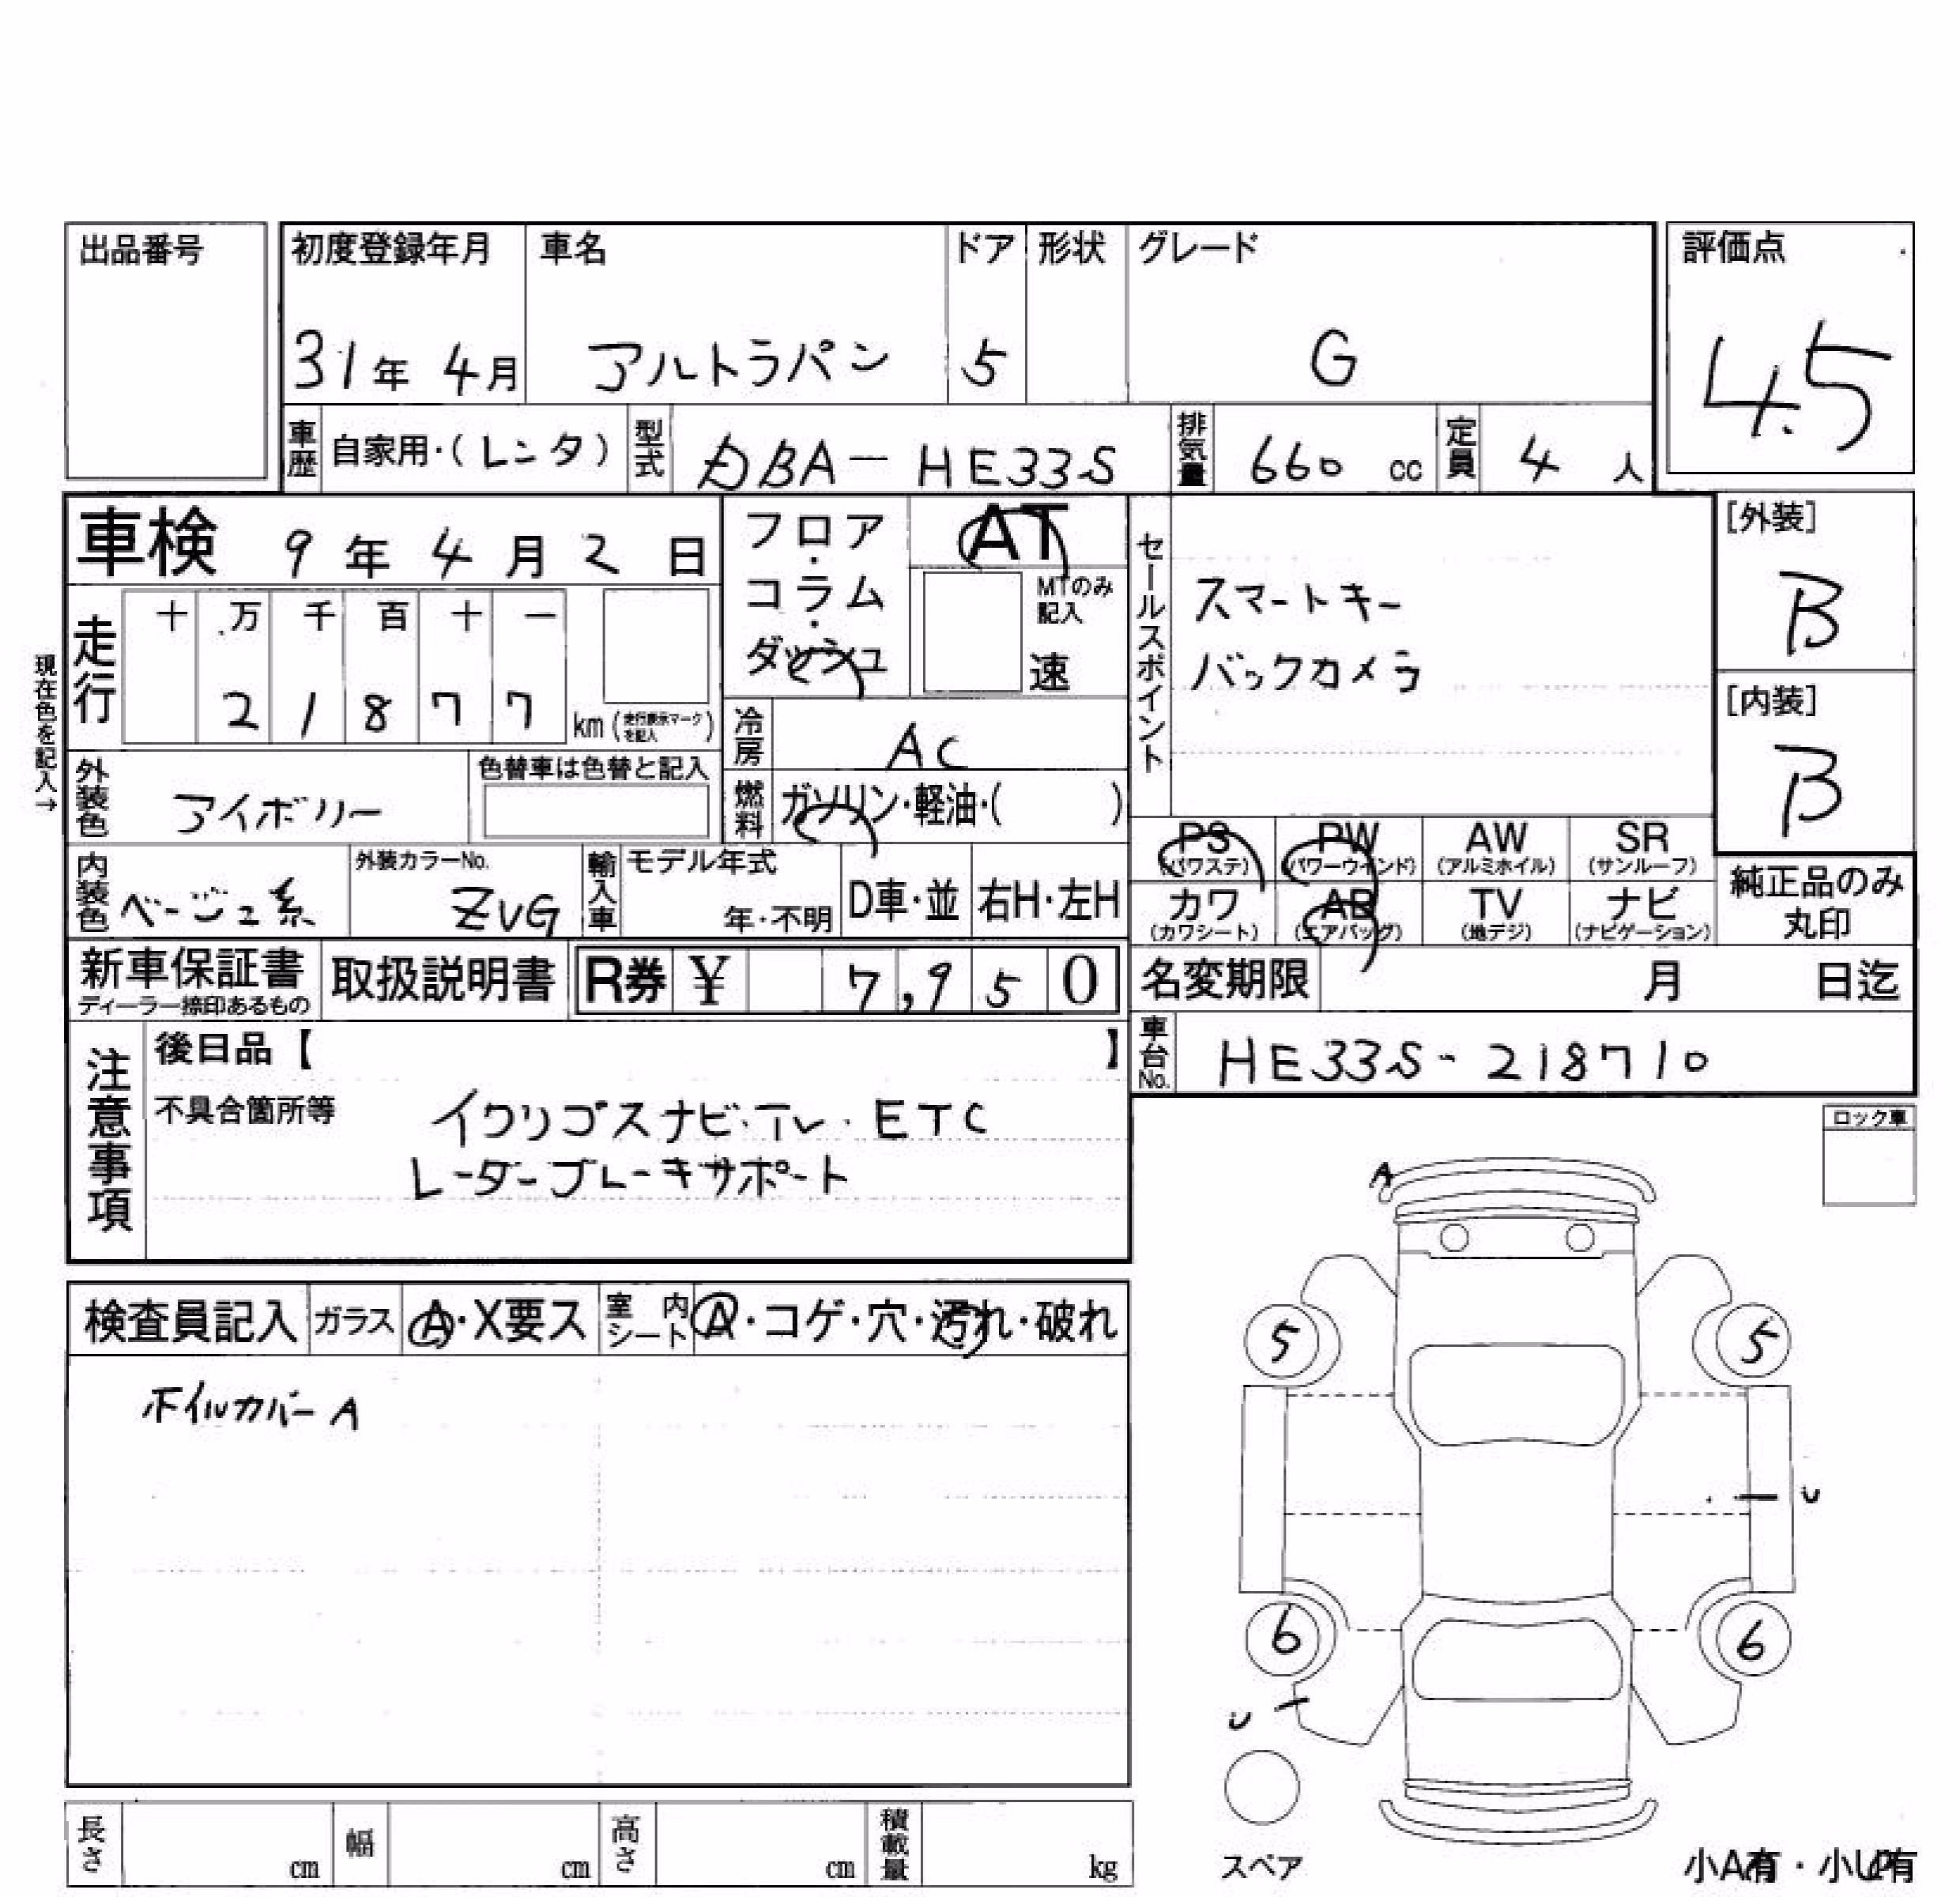 出品番号
初度登録年月 車名 ドア 形状 グレード 評価点
31年 4月 アルトラパン 5 G 4.5
車歴 自家用・(レンタ) 型式 DBA-HE33S 排気量 660 cc 定員 4 人
車検 9年 4月 2日
フロア・コラム・ダッシュ
AT
MTのみ記入
速
セールスポイント
スマートキー
バックカメラ
[外装]
B
[内装]
B
現在色を記入→
走行 十 万 千 百 十 一
2 1 8 7 7 km (走行表示マークを記入)
冷房 AC
外装色 アイボリー 色替車は色替と記入
燃料 ガソリン・軽油・( )
PS (パワステ) PW (パワーウインド) AW (アルミホイル) SR (サンルーフ)
カワ (カワシート) AB (エアバッグ) TV (地デジ) ナビ (ナビゲーション)
純正品のみ
丸印
内装色 ベージュ系 外装カラーNo. ZVG 輸入車 モデル年式 年・不明 D車・並 右H・左H
新車保証書 ディーラー捺印あるもの 取扱説明書 R券 ¥ 7,950
名変期限 月 日迄
車台No. HE33S-218710
注意事項
後日品【 】
不具合箇所等
イクリプスナビ・TV・ETC
レーダーブレーキサポート
ロック車
検査員記入 ガラス A・X要ス 室内シート A・コゲ・穴・汚れ・破れ
ホイルカバーA
A
5 5
U
6 6
U
スペア
長さ cm 幅 cm 高さ cm 積載量 kg
小A有・小U有